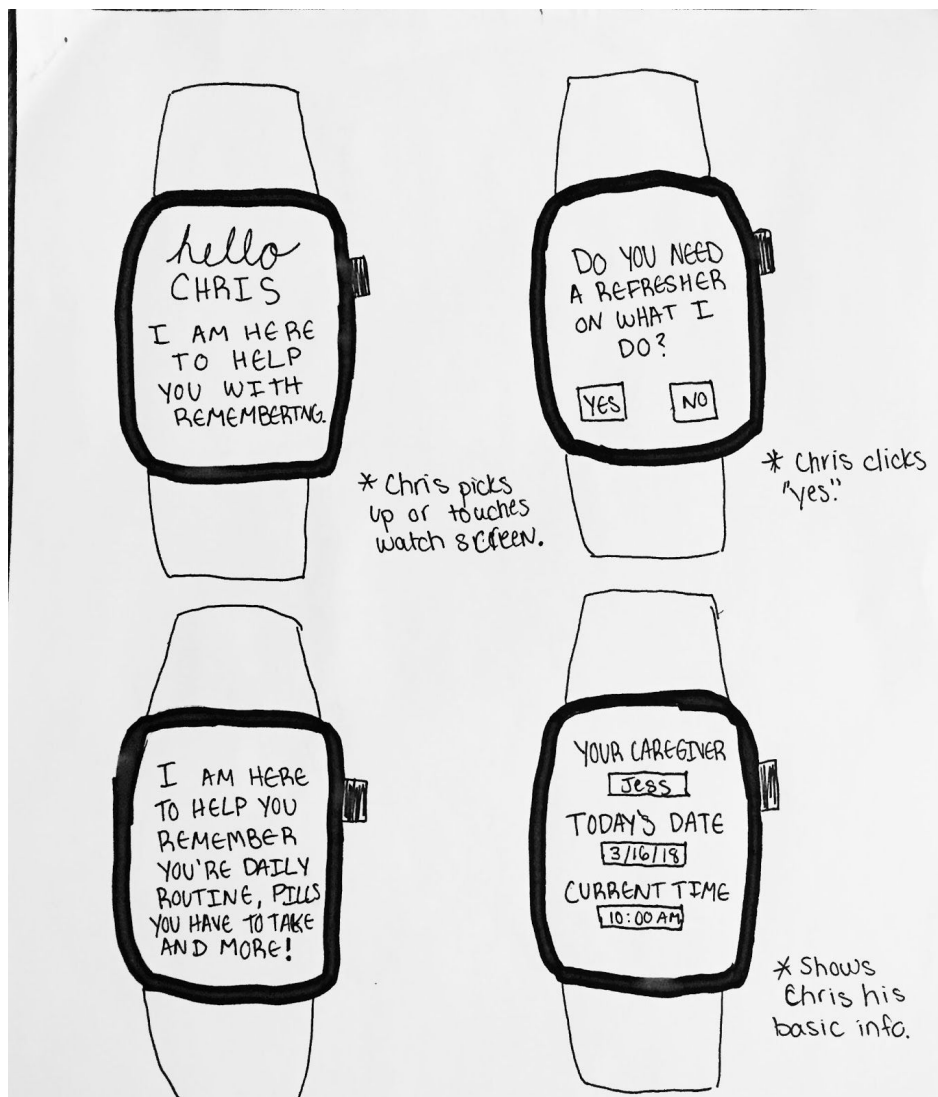 hello
CHRIS
I AM HERE
TO HELP
YOU WITH
REMEMBERING.
* Chris picks
up or touches
watch screen.
DO YOU NEED
A REFRESHER
ON WHAT I
DO?
YES NO
* Chris clicks
"yes."
I AM HERE
TO HELP YOU
REMEMBER
YOU'RE DAILY
ROUTINE, PILLS
YOU HAVE TO TAKE
AND MORE!
YOUR CAREGIVER
Jess
TODAY'S DATE
3/16/18
CURRENT TIME
10:00 AM
* Shows
Chris his
basic info.